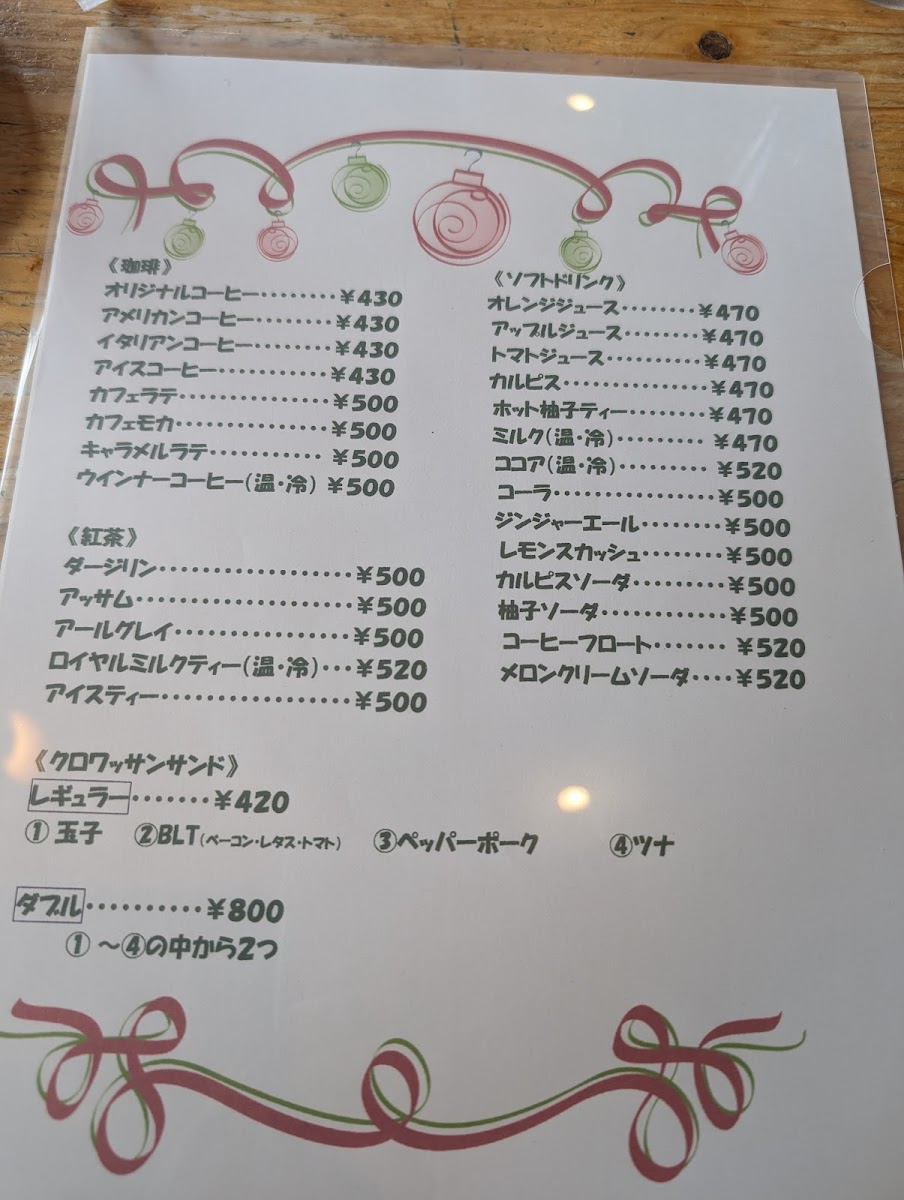 《珈琲》
オリジナルコーヒー････････￥430
アメリカンコーヒー････････￥430
イタリアンコーヒー････････￥430
アイスコーヒー････････････￥430
カフェラテ････････････････￥500
カフェモカ････････････････￥500
キャラメルラテ････････････￥500
ウインナーコーヒー(温･冷) ￥500
《紅茶》
ダージリン･･･････････････････￥500
アッサム･････････････････････￥500
アールグレイ･････････････････￥500
ロイヤルミルクティー(温･冷)･･･￥520
アイスティー･･･････････････････￥500
《ソフトドリンク》
オレンジジュース････････￥470
アップルジュース････････￥470
トマトジュース･･････････￥470
カルピス･･････････････￥470
ホット柚子ティー････････￥470
ミルク(温･冷)･････････ ￥470
ココア(温･冷)･････････ ￥520
コーラ････････････････￥500
ジンジャーエール････････￥500
レモンスカッシュ････････￥500
カルピスソーダ･････････￥500
柚子ソーダ････････････￥500
コーヒーフロート･･･････ ￥520
メロンクリームソーダ････￥520
《クロワッサンサンド》
レギュラー･･･････￥420
① 玉子 ②BLT(ベーコン･レタス･トマト) ③ペッパーポーク ④ツナ
ダブル･･････････￥800
① ～④の中から2つ